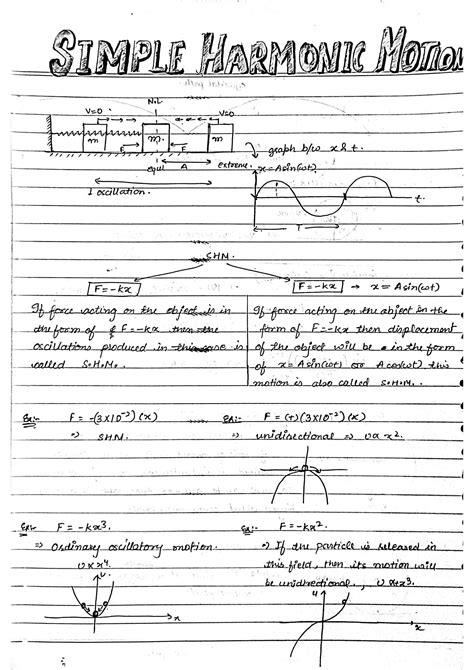 SIMPLE HARMONIC MOTION
N.L.
V=0 V=0
m m m
F F
equi A extreme.
1 oscillation.
graph b/w x & t.
x=Asin(ωt)
t.
T
SHM.
F=-kx
F=-kx → x = Asin(ωt)
If force acting on the object is in
the form of F=-kx then the
oscillations produced in this case is
called S.H.M.
If force acting on the object in the
form of F=-kx then displacement
of the object will be in the form
of x=Asin(ωt) or Acosωt, this
motion is also called S.H.M.
Ex:- F = -(3×10⁻²)(x)
⇒ SHM.
Ex:- F = (+)(3×10⁻²)(x)
⇒ unidisectional ⇒ U∝x².
Ex:- F = -kx³.
⇒ Ordinary oscillatory motion.
U∝x⁴.
U
x
Ex:- F=-kx².
⇒ If the particle is released in
this field, then its motion will
be unidirectional., U∝+x³.
U
x